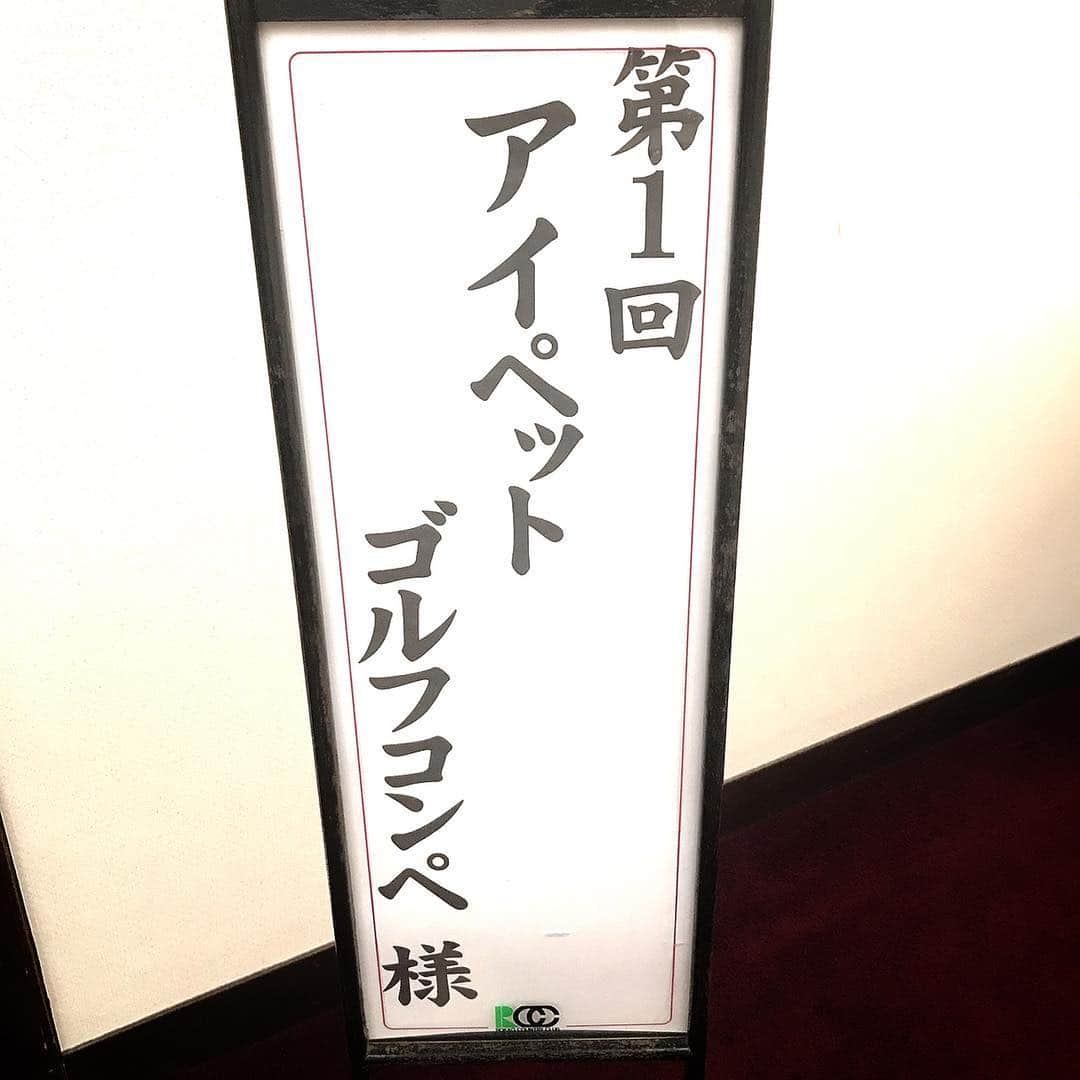 第1回
アイペット
ゴルフコンペ 様